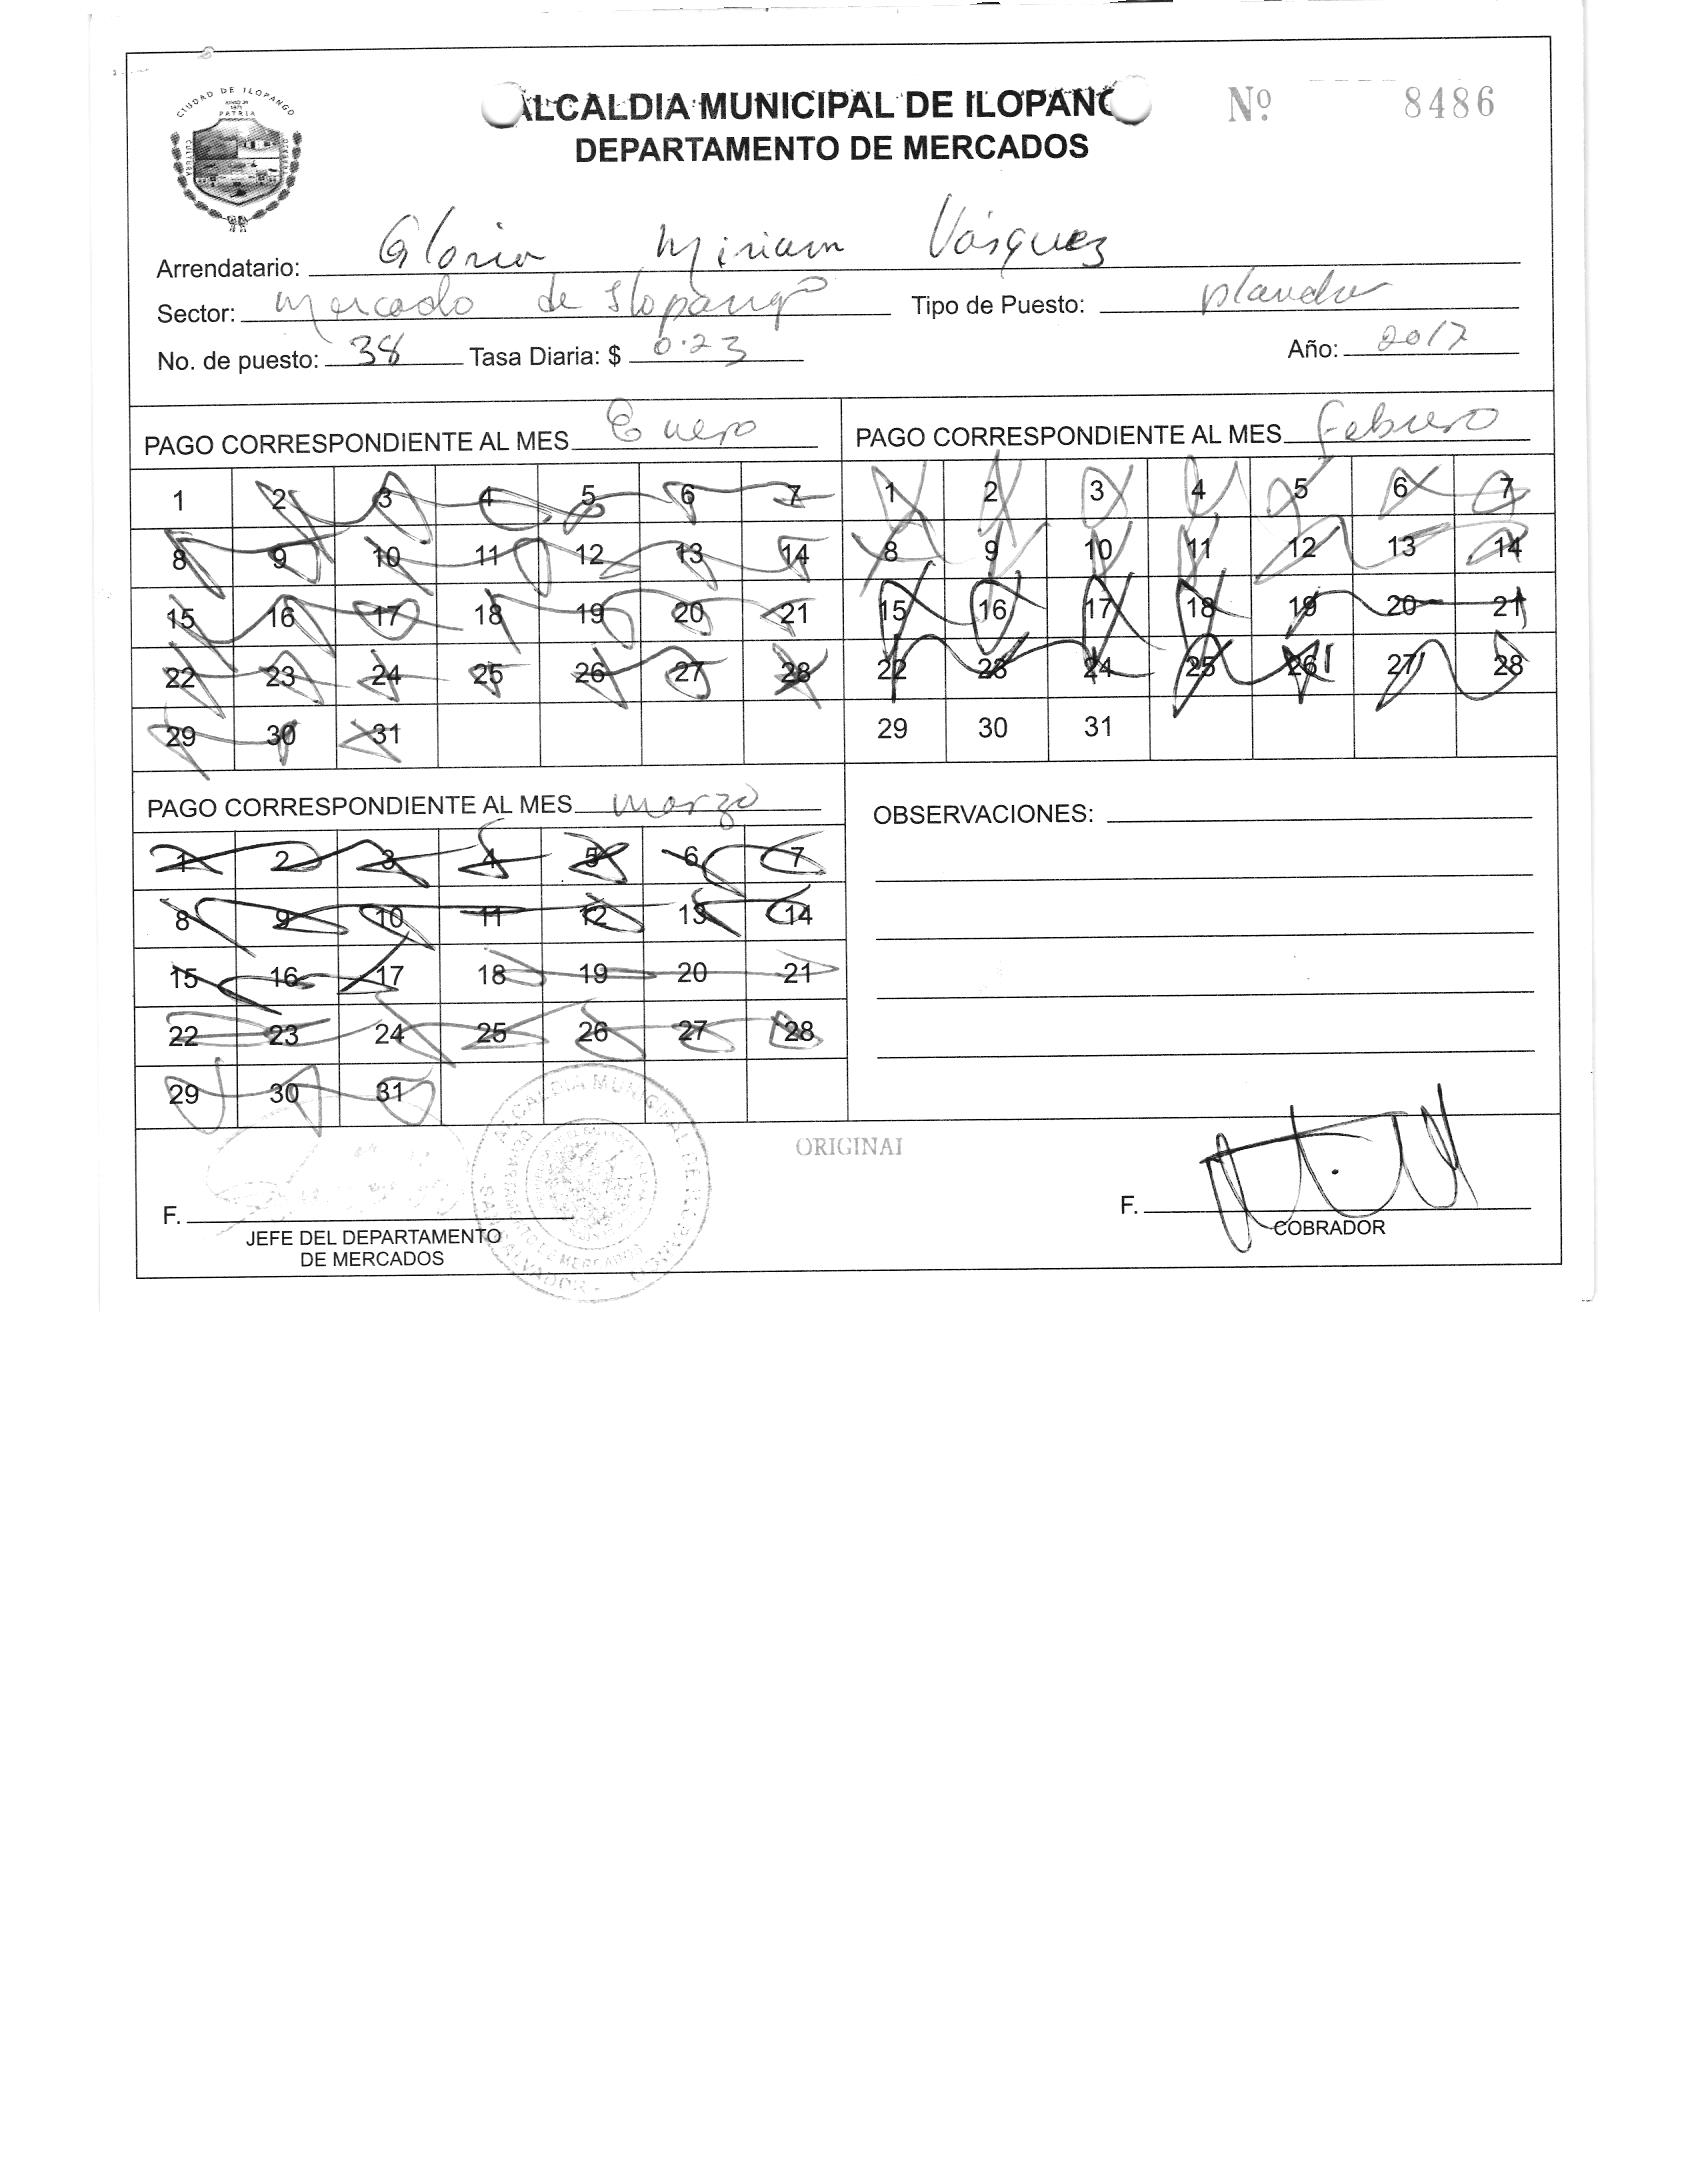 ALCALDIA MUNICIPAL DE ILOPANG
Nº 8486
DEPARTAMENTO DE MERCADOS
CIUDAD DE ILOPANGO
PATRIA
CULTURA
Arrendatario: Gloria Miriam Vásquez
Sector: Mercado de Ilopango Tipo de Puesto:
No. de puesto: 38 Tasa Diaria: $ 0.23 Año: 2017
PAGO CORRESPONDIENTE AL MES Enero
1 2 3 4 5 6 7
8 9 10 11 12 13 14
15 16 17 18 19 20 21
22 23 24 25 26 27 28
29 30 31
PAGO CORRESPONDIENTE AL MES Febrero
1 2 3 4 5 6 7
8 9 10 11 12 13 14
15 16 17 18 19 20 21
22 23 24 25 26 27 28
29 30 31
PAGO CORRESPONDIENTE AL MES Marzo
1 2 3 4 5 6 7
8 9 10 11 12 13 14
15 16 17 18 19 20 21
22 23 24 25 26 27 28
29 30 31
OBSERVACIONES:
ALCALDIA MUNICIPAL DE ILOPANGO
SAN SALVADOR
ORIGINAL
F.
JEFE DEL DEPARTAMENTO
DE MERCADOS
F.
COBRADOR